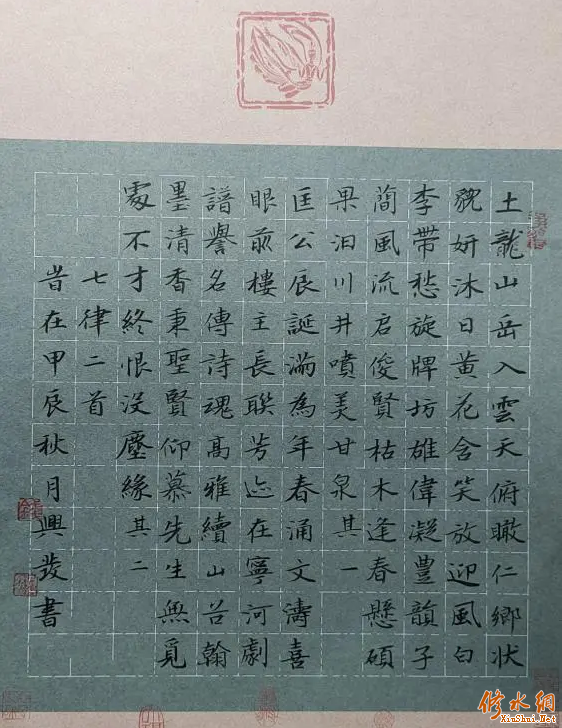 土龍山岳入雲天俯瞰仁鄉狀
貌妍沐日黃花含笑放迎風白
李帶愁旋牌坊雄偉凝豐韻子
蘭風流君俊賢枯木逢春懸碩
果汨川井噴美甘泉其一
匡公辰誕滿為年春涌文濤喜
眼前樓主長联芳迹在寧河劇
譜譽名傳詩魂高雅續山谷翰
墨清香秉聖賢仰慕先生無覓
處不才終恨沒塵緣其二
七律二首
旹在甲辰秋月興發書
修水網
XiuShui.Net